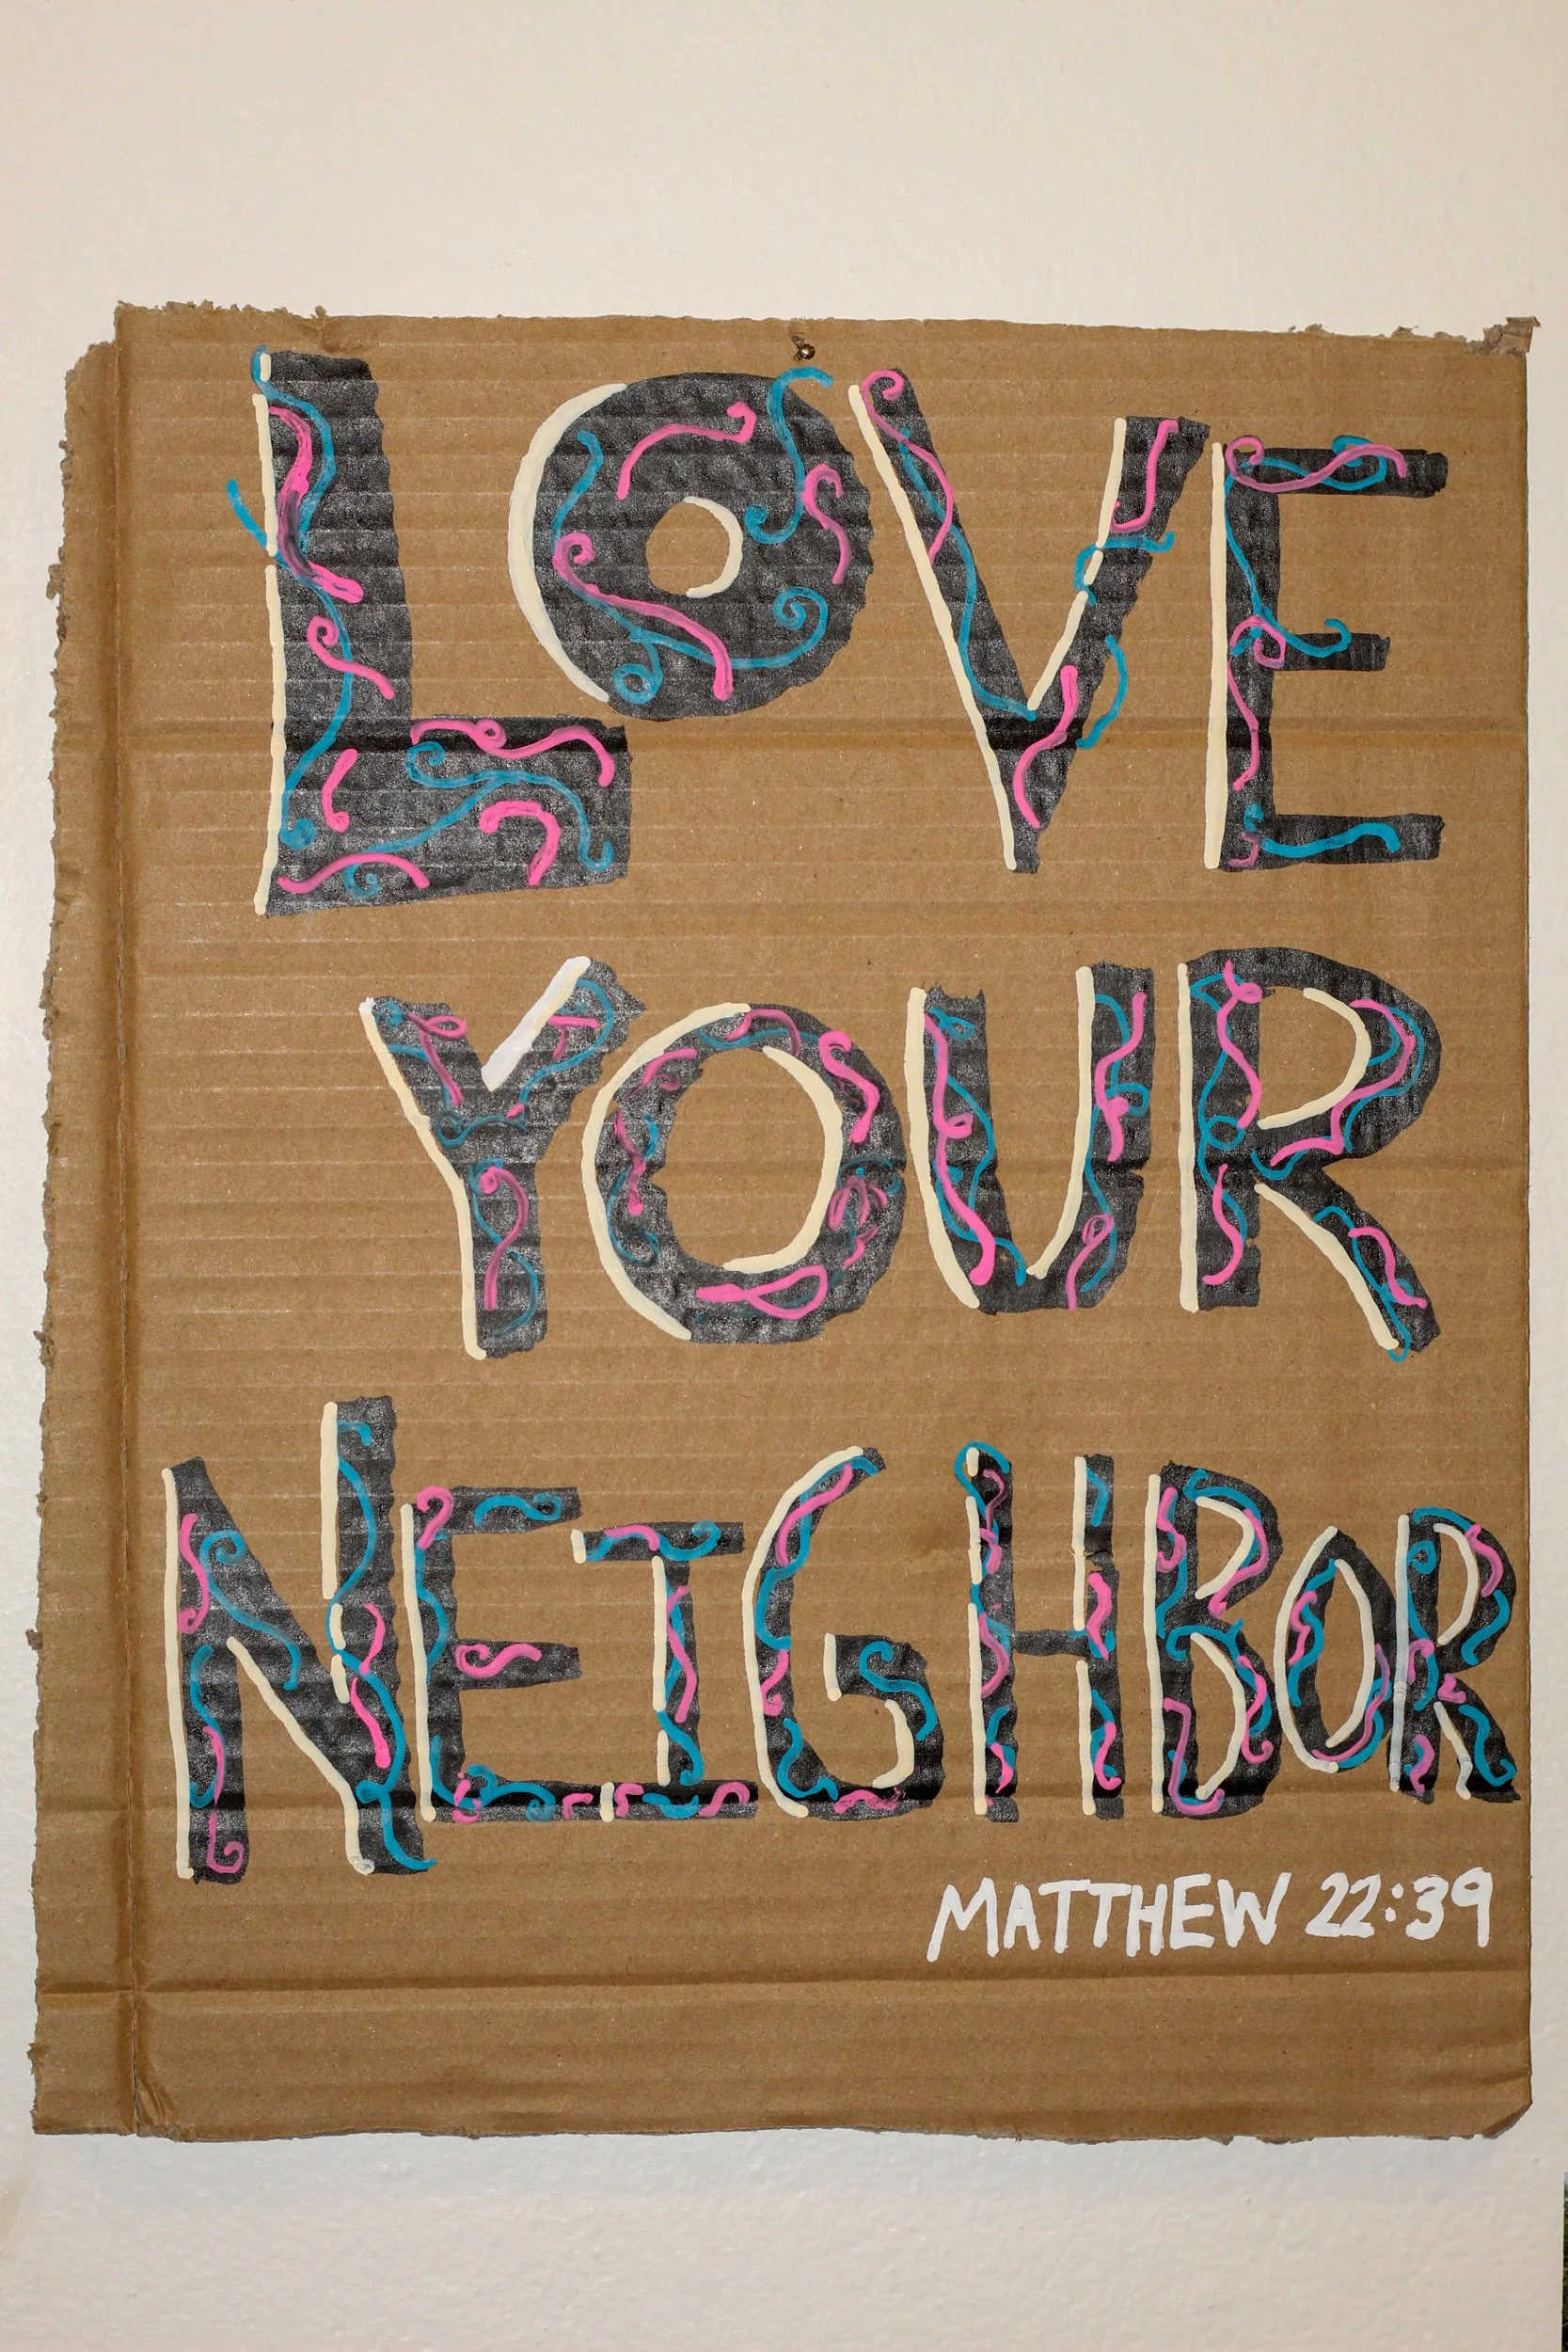 LOVE
YOUR
NEIGHBOR
MATTHEW 22:39